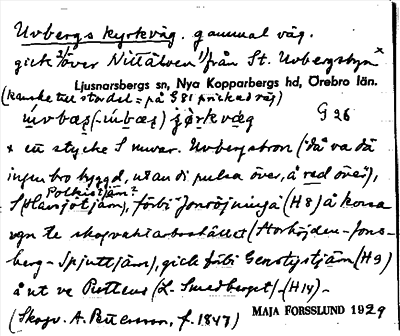 Uvbergs kyrkväg. gammal väg.
gick 2/ över Nittälven 1/ från St. Uvbergstyn x
Ljusnarsbergs sn, Nya Kopparbergs hd, Örebro län.
(kanske till stordel = på S 81 prickad väg)
G 26
x en stycke S nuvar. Uvbergsbron ("då va dä
ingen bro byggd, utan di pulsa över, å red över"),
Polkistjärn?
S Olavsjötjärn), förbi Jonröjninga (H8) å korsa
vgn te skogvaktarbostället (Storhöjden-Jons-
berg - Spjuttjärn), gick förbi Genstystjärn (H9)
å ut ve (L. Smedberget) - (H14) -
(Skogv. A. Pettersson, f. 1847)
MAJA FORSSLUND 1929